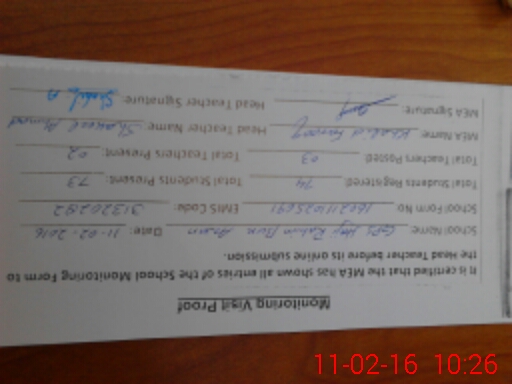 Monitoring Visit Proof
It is certified that the MEA has shown all entries of the School Monitoring Form to
the Head Teacher before its online submission.
School Name: GPS Haji Rahim Bux Date: 11-02-2016
School Form No: EMIS Code: 31320282
Total Students Registered: 74 Total Students Present: 73
Total Teachers Posted: 03 Total Teachers Present: 02
MEA Name: Khalid Farooq Head Teacher Name: Shakeel Ahmad
MEA Signature: Head Teacher Signature: Shakil A
11-02-16 10:26